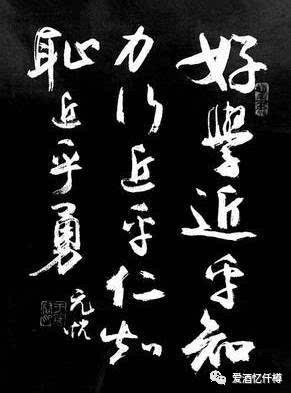 好學近乎知
力行近乎仁知
恥近乎勇
元
爱酒忆仟樽